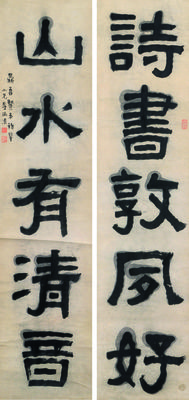 詩書敦夙好
山水有清音